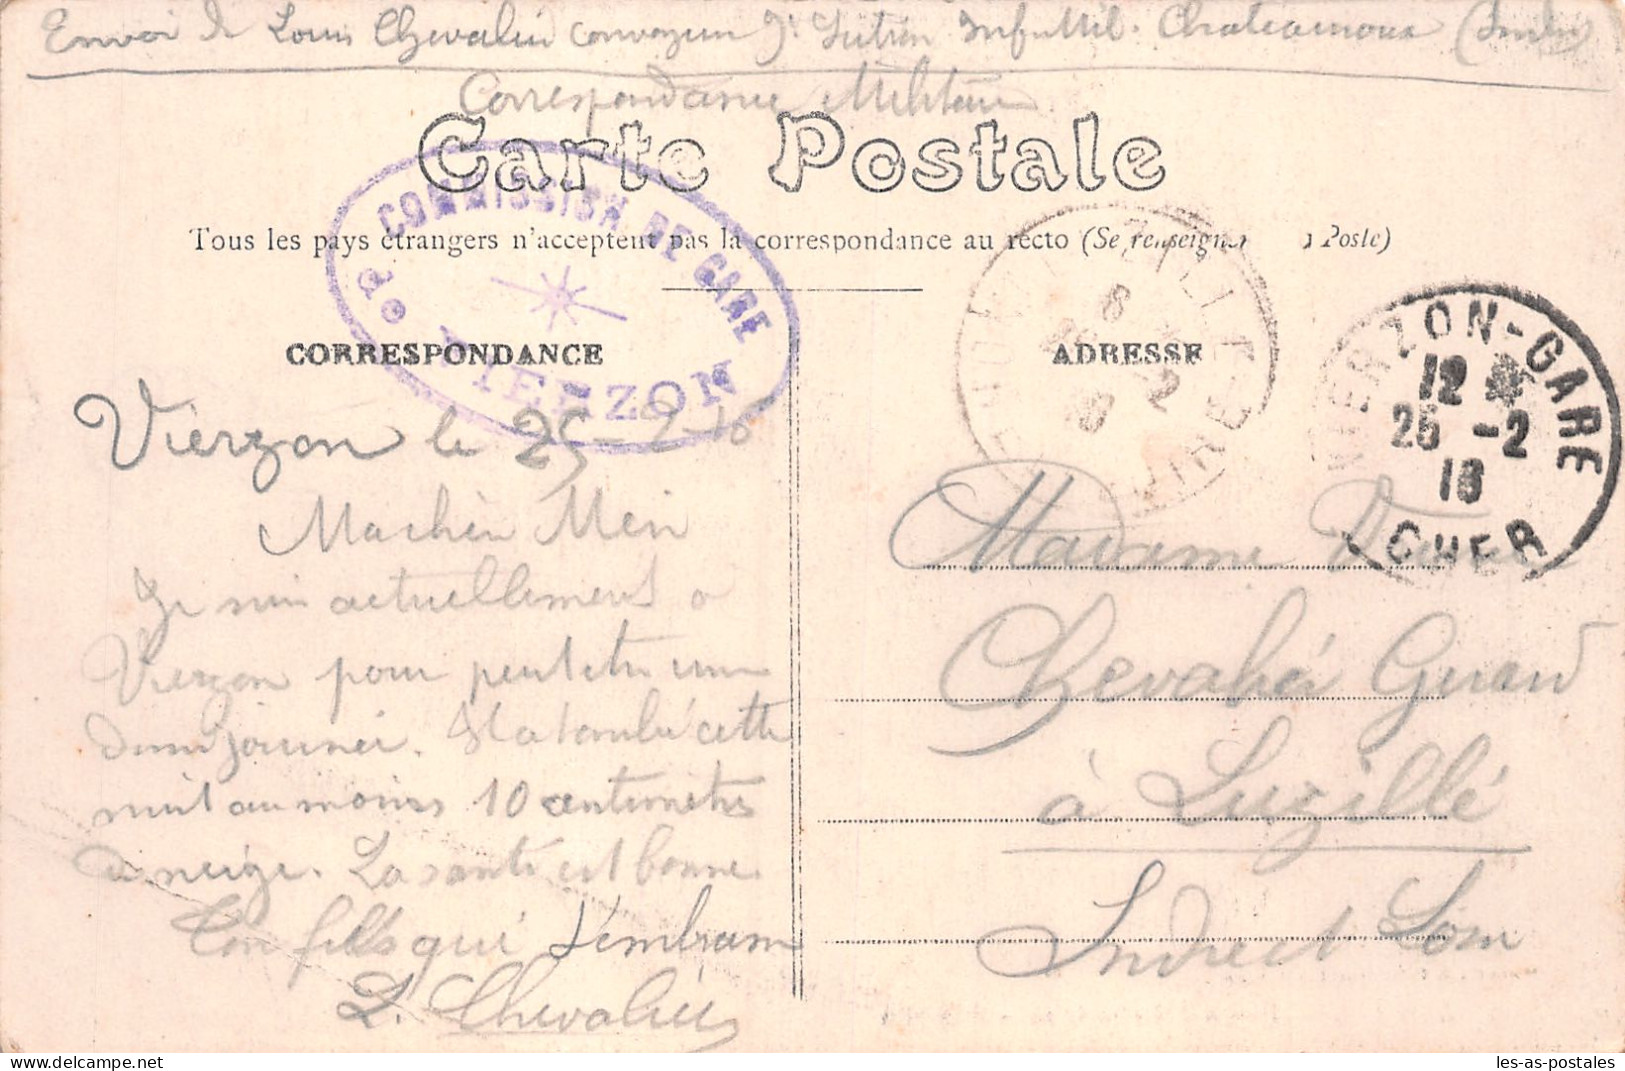 Envoi de Louis Chevalier convoyeur Chateauroux (Indre)
Correspondance Militaire
Carte Postale
Tous les pays étrangers n'acceptent pas la correspondance au recto (Se renseigner à la Poste)
COMMISSION DE GARE
de VIERZON
CORRESPONDANCE
ADRESSE
VIERZON-GARE
12 *
25 -2
16
CHER
Vierzon le 25-2-16
Ma chère Mère
Je suis actuellement a
Vierzon pour peut etre une
demi journée. Il a tombé cette
nuit au moins 10 centimètres
de neige. La santé est bonne
Ton fils qui t'embrasse
L. Chevalier
Madame Veuve
Chevalier Guiard
à Luzillé
Indre et Loire
les-as-postales